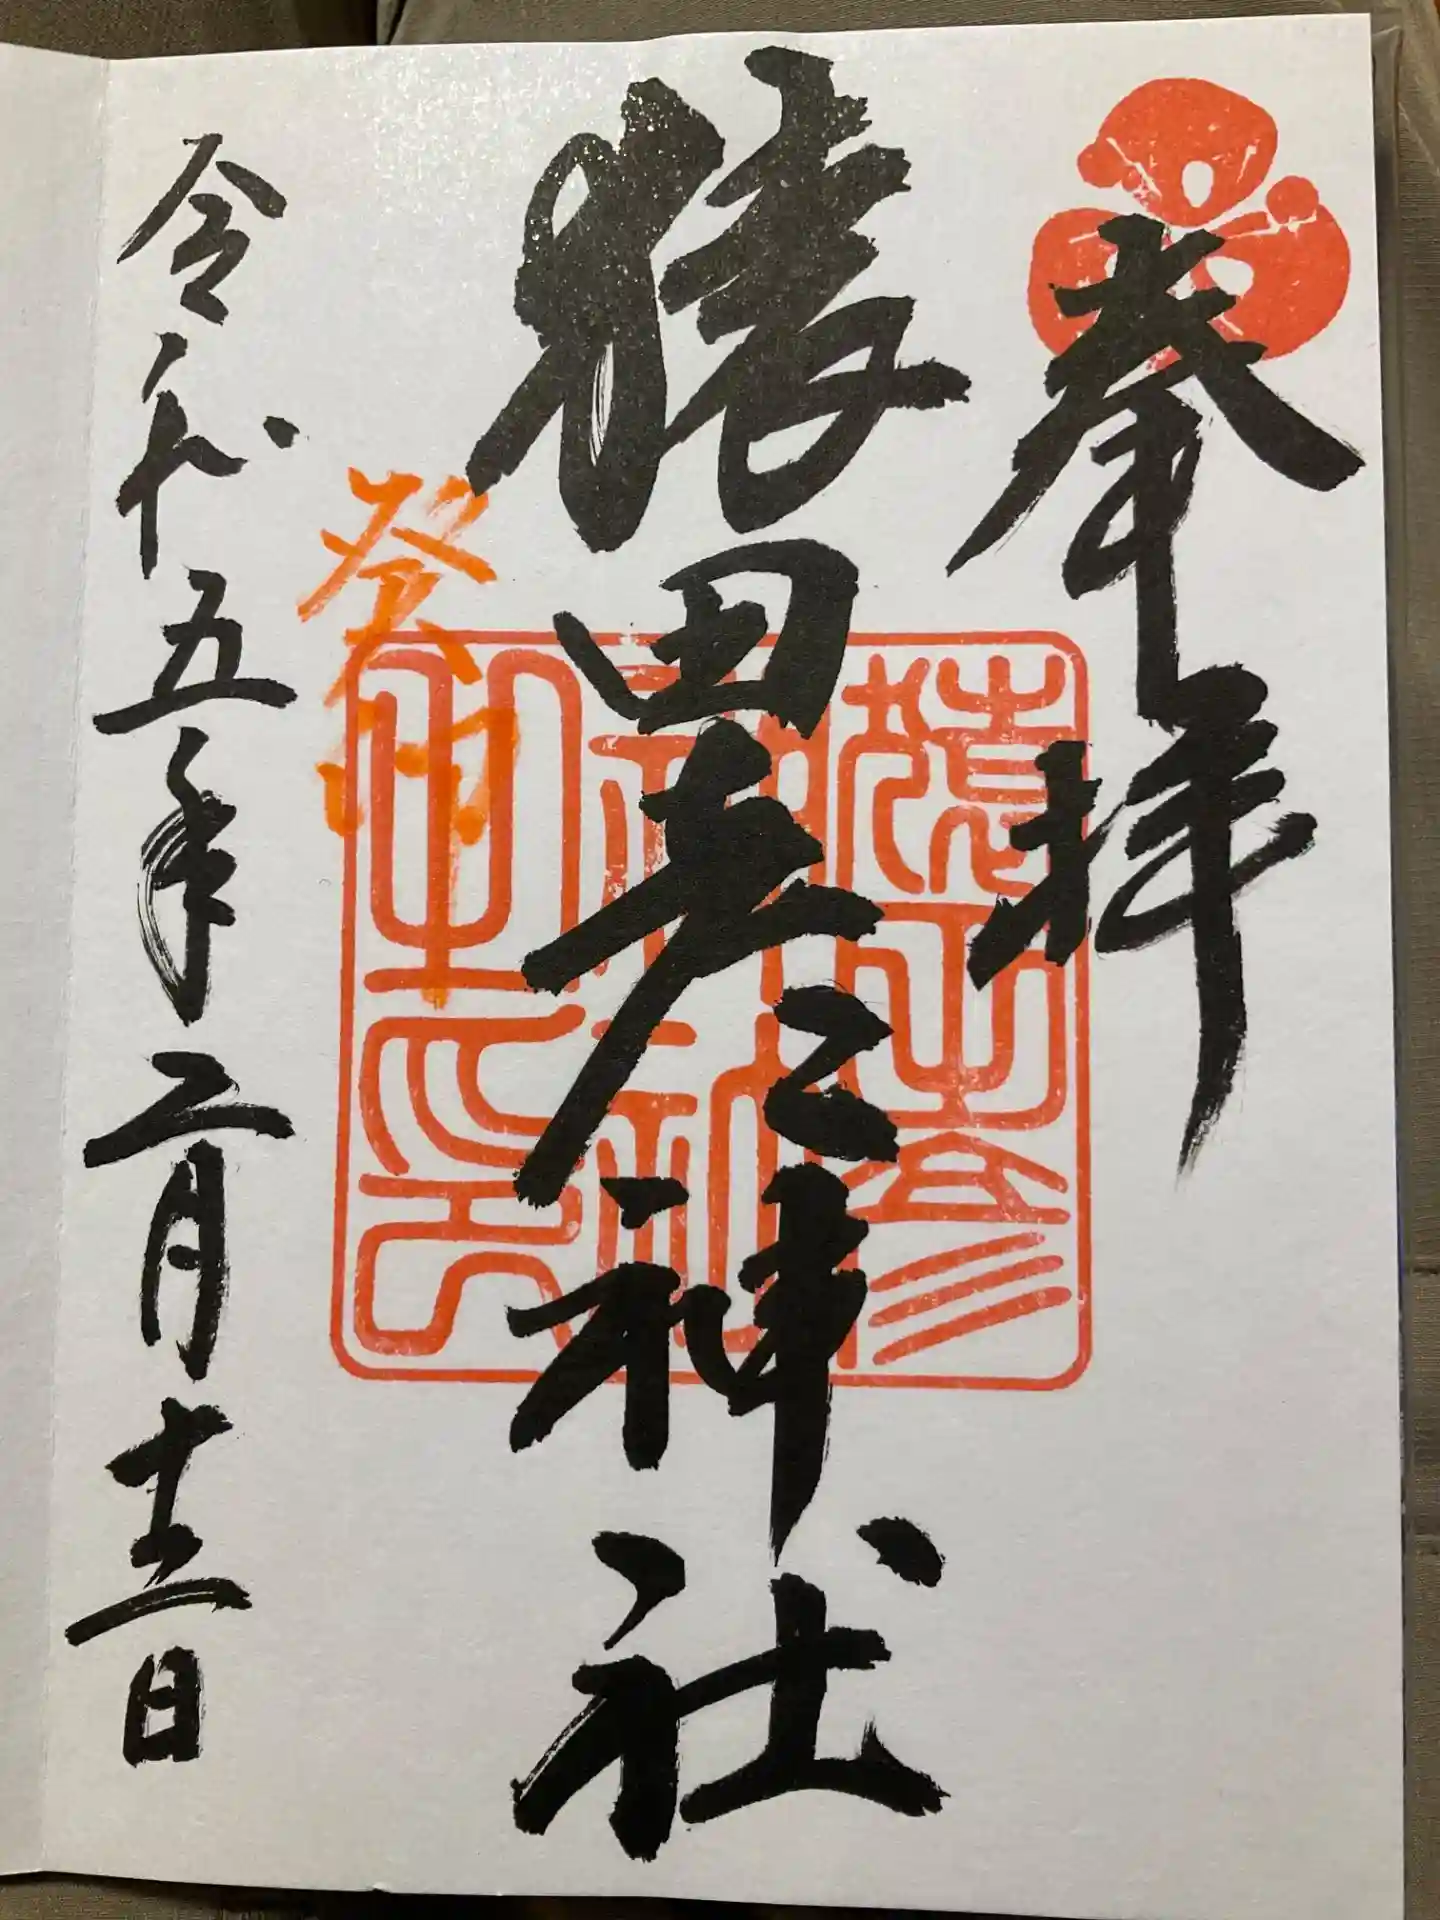 奉拝
猿田彦神社
癸卯
令和五年二月十二日